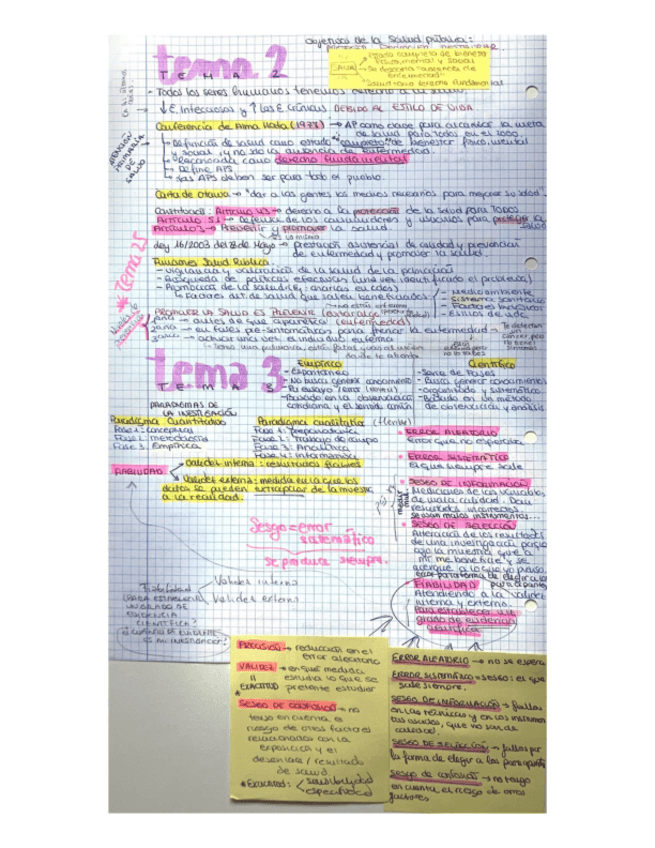 Objetivos de la salud pública:
tema 2
TEMA 2
SALUD
Estado completo de bienestar
físico, mental y social
Se descarta "ausencia de
enfermedad"
Salud como derecho fundamental
- Todos los seres humanos tenemos derecho a la salud.
↓E. Infecciosas y ↑las E. crónicas DEBIDO AL ESTILO DE VIDA
ATENCIÓN
PRIMARIA
DE
SALUD
Conferencia de Alma Mata (1978) → AP como clave para alcanzar la meta
de salud para todos en el 2000
- Definición de salud como estado "completo" de bienestar físico, mental
y social, y no solo la ausencia de enfermedad.
- Reconocida como derecho fundamental
- Define APS
- Las APS deben ser para todo el pueblo.
Carta de Otawa → "dar a las gentes los medios necesarios para mejorar su salud".
Constitución: Artículo 43 → derecho a la protección de la salud para todos
Artículo 51 → Defensa de los consumidores y usuarios para proteger la
salud
Artículo 3 → Prevenir y promover la salud.
Ley 16/2003 del 28 de Mayo → prestación asistencial de calidad y prevención
de enfermedad y promover la salud.
* Tema 25
Funciones Salud Pública:
- Vigilancia y valoración de la salud de la población
- Búsqueda de políticas efectivas (una vez identificado el problema)
- Promoción de la salud
- Medio ambiente
- Sistema sanitario
- Estilos de vida
PROMOVER LA SALUD ES PREVENIR
1aria → antes de que aparezca (enfermedad)
2aria → en fases pre-sintomáticas para frenar la enfermedad
3aria → actuar una vez el individuo enferma
tema 3
TEMA 3
Empírico
- Espontáneo
- No busca generar conocimiento
- Por ensayo error
- Basado en la observación
cotidiana y el sentido común
Científico
- Serie de fases
- Busca generar conocimientos
- Organizado y sistemático
- Basado en un método
de observación y análisis
PARADIGMAS DE
LA INVESTIGACIÓN
Paradigma Cuantitativo
Fase 1: Conceptual
Fase 2: Metodológica
Fase 3: Empírica
Paradigma cualitativo
Fase 1: Preparatoria
Fase 2: Trabajo de campo
Fase 3: Analítica
Fase 4: Informativa
FIABILIDAD
Validez interna: resultados fiables
Validez externa: medida en la que los
datos se pueden extrapolar de la muestra
a la realidad.
Sesgo = error
sistemático
se produce siempre.
• ERROR ALEATORIO
Error que no esperaba
• ERROR SISTEMÁTICO
El que siempre sale
• SESGO DE INFORMACIÓN
Mediciones de las variables
de mala calidad. Dan
resultados incorrectos,
se usan malos instrumentos...
• SESGO DE SELECCIÓN
Alteración de los resultados
de una investigación porque
cojo la muestra que a
mí me beneficie y se
acerque a lo que yo pienso.
FIABILIDAD
Atendiendo a la validez
interna y externa.
Para establecer un
grado de evidencia
científica
Fiabilidad
Validez interna
Validez extern
(PARA ESTABLECER
UN GRADO DE
EVIDENCIA
CIENTÍFICA)
PRECISIÓN → reducción en el
error aleatorio
VALIDEZ → en qué medida
estudia lo que se
pretende estudiar
EXACTITUD
SESGO DE CONFUSIÓN → no
tengo en cuenta el
riesgo de otros factores
relacionados con la
exposición y el
desenlace / resultado
de salud
* EXACTITUD: sensibilidad
especificidad
ERROR ALEATORIO → no se espera
ERROR SISTEMÁTICO = SESGO: el que
sale siempre.
SESGO DE INFORMACIÓN → fallos
en las técnicas y en los instrumen
tos usados, que no son de
calidad.
SESGO DE SELECCIÓN → fallos por
la forma de elegir a los participantes
sesgo de confusión → no tengo
en cuenta el riesgo de otros
factores